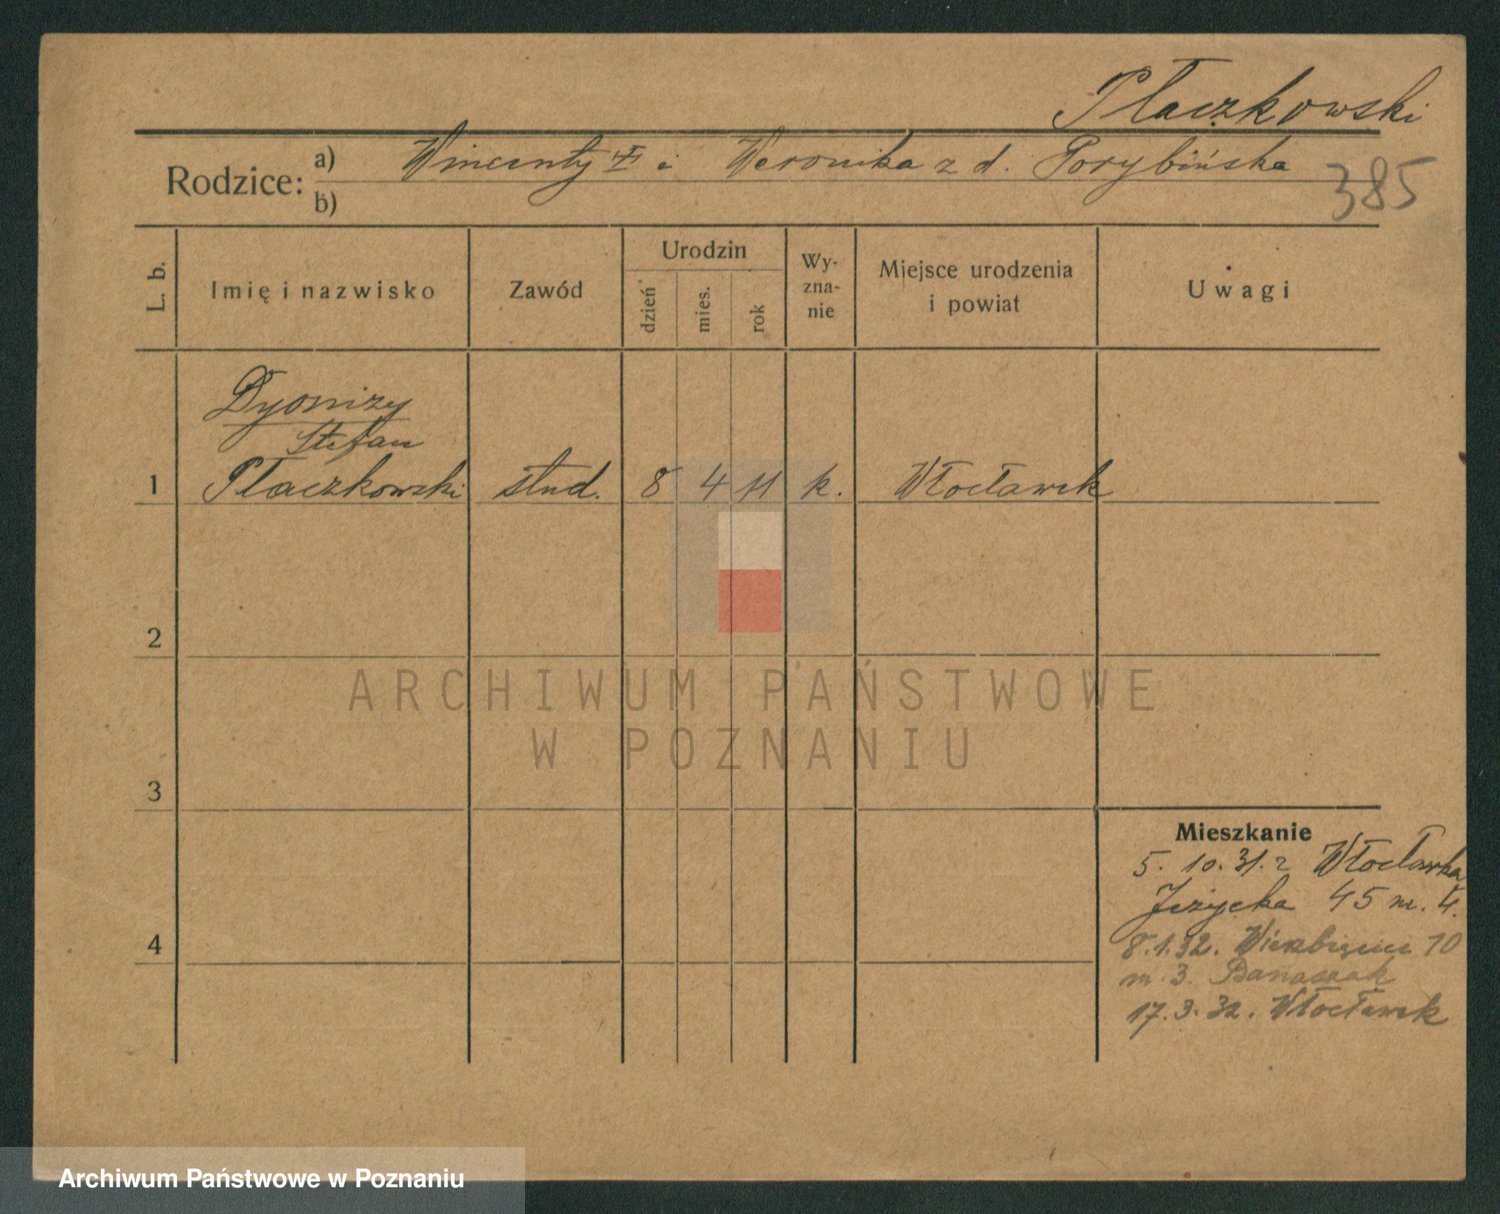 Płaczkowski
Rodzice: a) Wincenty i Weronika z d. Porybińska
b)
385
L. b.
Imię i nazwisko
Zawód
Urodzin
dzień
mies.
rok
Wy-
zna-
nie
Miejsce urodzenia
i powiat
Uwagi
Dyonizy
Stefan
1 Płaczkowski stud. 8 4 11 k. Włocławek
2
ARCHIWUM PAŃSTWOWE
W POZNANIU
3
Mieszkanie
5. 10. 31. z Włocławka
Jeżycka 45 m. 4.
4
8.1.32. 10
m. 3. Banaszak
17. 3. 32. Włocławek
Archiwum Państwowe w Poznaniu